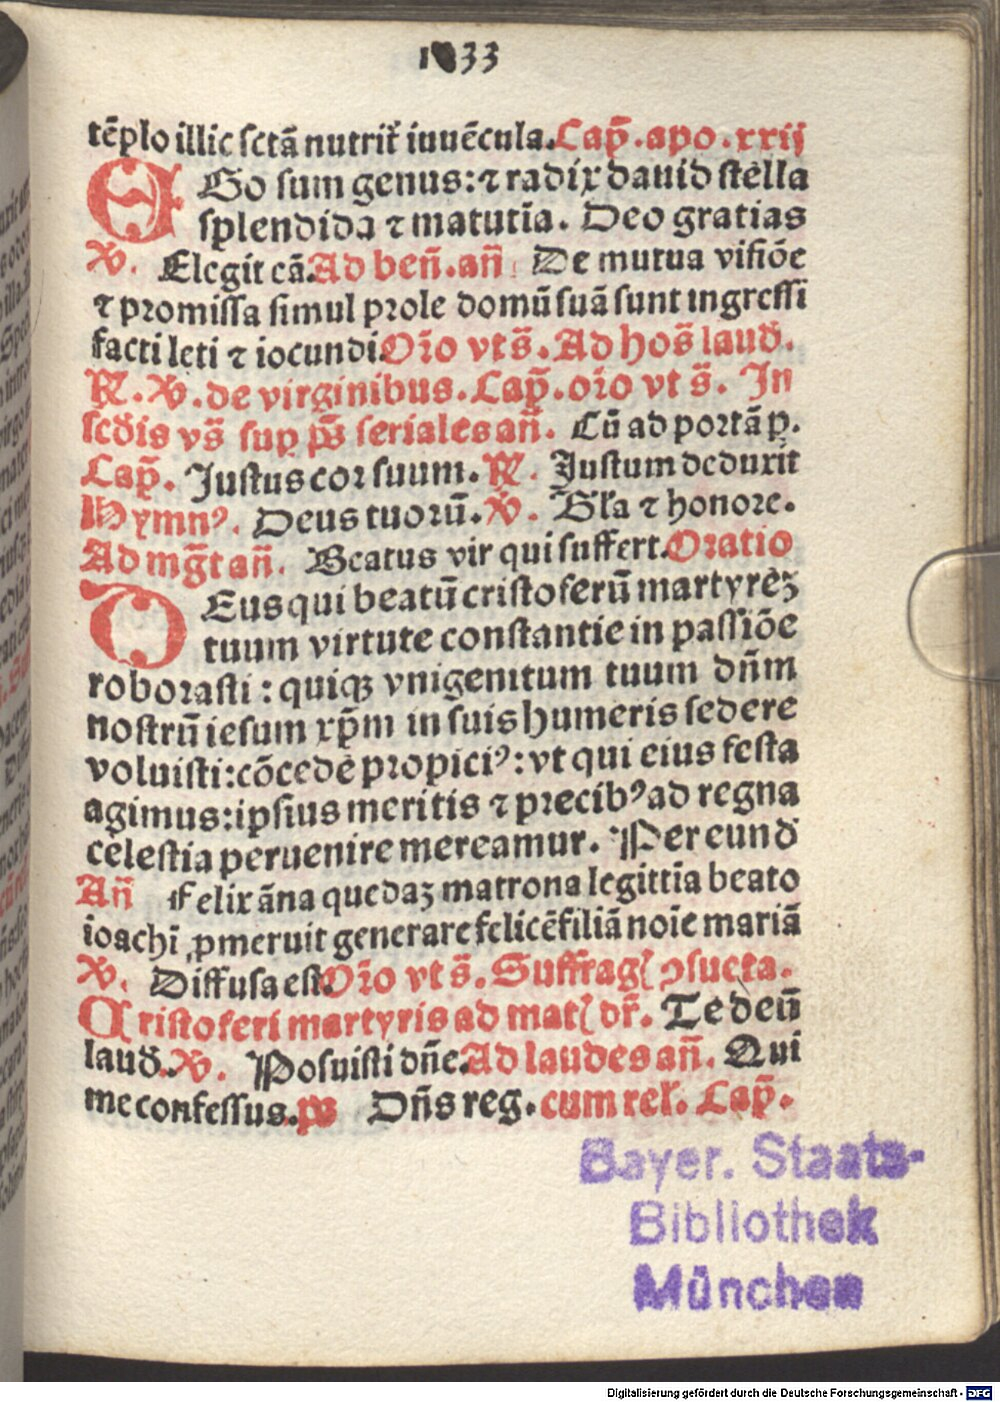 1 33
tẽplo illic sctã nutrit̃ iuuẽcula. Cap̃. apo. xxij
EGo sum genus: ⁊ radix dauid stella
splendida ⁊ matutĩa. Deo gratias
℣. Elegit eã. Ad beñ. añ De mutua visiõe
⁊ promissa simul prole domũ suã sunt ingressi
facti leti ⁊ iocundi. Orĩo vt s̃. Ad hos̃ laud̃.
℟. ℣. de virginibus. Cap̃. orĩo vt s̃. In
scd̃is vs̃ sup̱ ps̃ feriales añ. Cũ ad portã p̱.
Cap̃. Justus cor suum. ℟. Justum deduxit
Hymnꝰ. Deus tuorũ. ℣. Gl̃a ⁊ honore.
Ad mg̃t añ. Beatus vir qui suffert. Oratio
DEus qui beatũ cristoferũ martyrẽꝫ
tuum virtute constantie in passiõe
roborasti: quiqꝫ vnigenitum tuum dñm
nostrũ iesum xp̃m in suis humeris sedere
voluisti: cõcede propiciꝰ: vt qui eius festa
agimus: ipsius meritis ⁊ precibꝰ ad regna
celestia peruenire mereamur. Per eund̃
Añ Felix ãna quedaꝫ matrona legittĩa beato
ioachĩ ꝓmeruit generare felicẽ filiã noĩe mariã
℣. Diffusa est. Orĩo vt s̃. Suffragꝭ ꝯsueta.
Cristoferi martyris ad matꝭ dr̃. Te deũ
laud̃. ℣. Posuisti dñe. Ad laudes añ. Qui
me confessus. ps̃ Dñs reg. cum rel̃. Cap̃.
Bayer. Staats-
Bibliothek
München
Digitalisierung gefördert durch die Deutsche Forschungsgemeinschaft - DFG